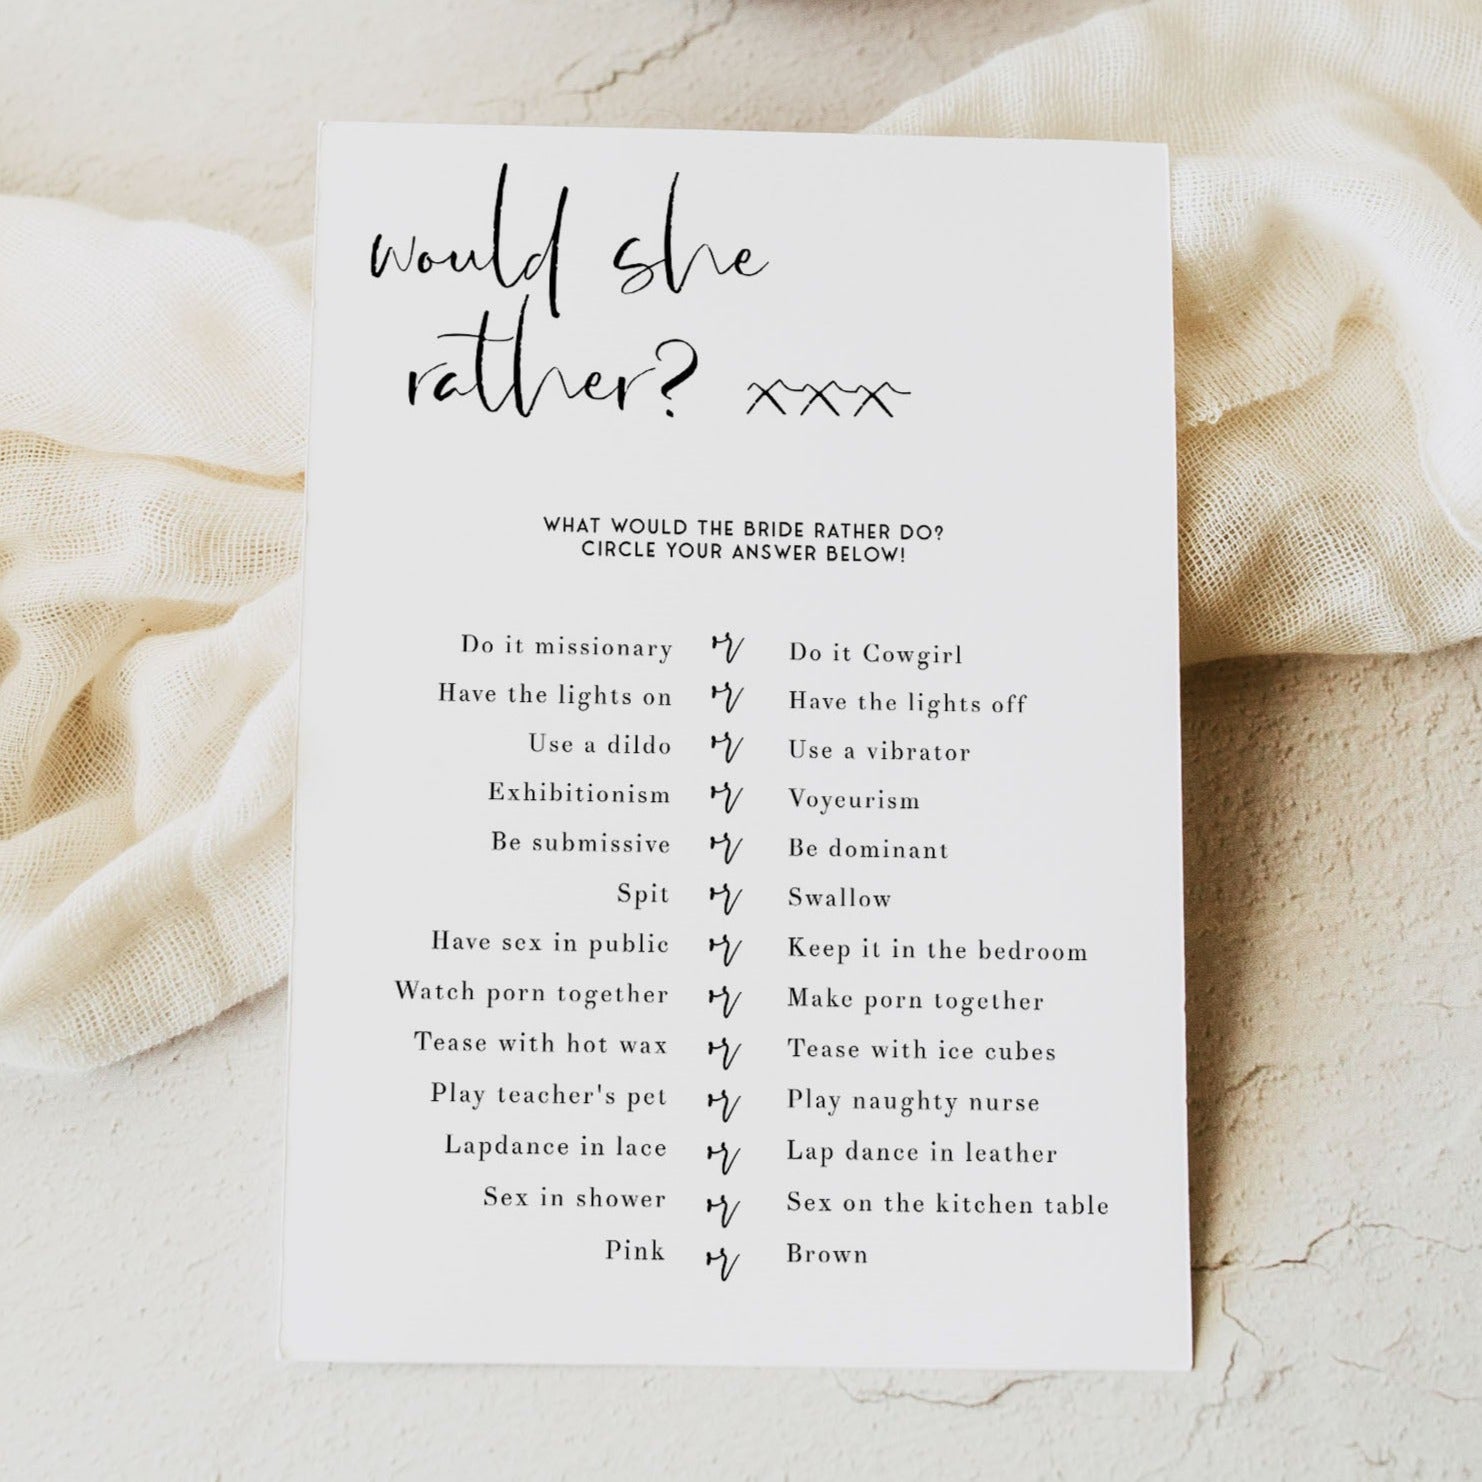 would she
rather? xxx
WHAT WOULD THE BRIDE RATHER DO?
CIRCLE YOUR ANSWER BELOW!
Do it missionary or Do it Cowgirl
Have the lights on or Have the lights off
Use a dildo or Use a vibrator
Exhibitionism or Voyeurism
Be submissive or Be dominant
Spit or Swallow
Have sex in public or Keep it in the bedroom
Watch porn together or Make porn together
Tease with hot wax or Tease with ice cubes
Play teacher's pet or Play naughty nurse
Lapdance in lace or Lap dance in leather
Sex in shower or Sex on the kitchen table
Pink or Brown